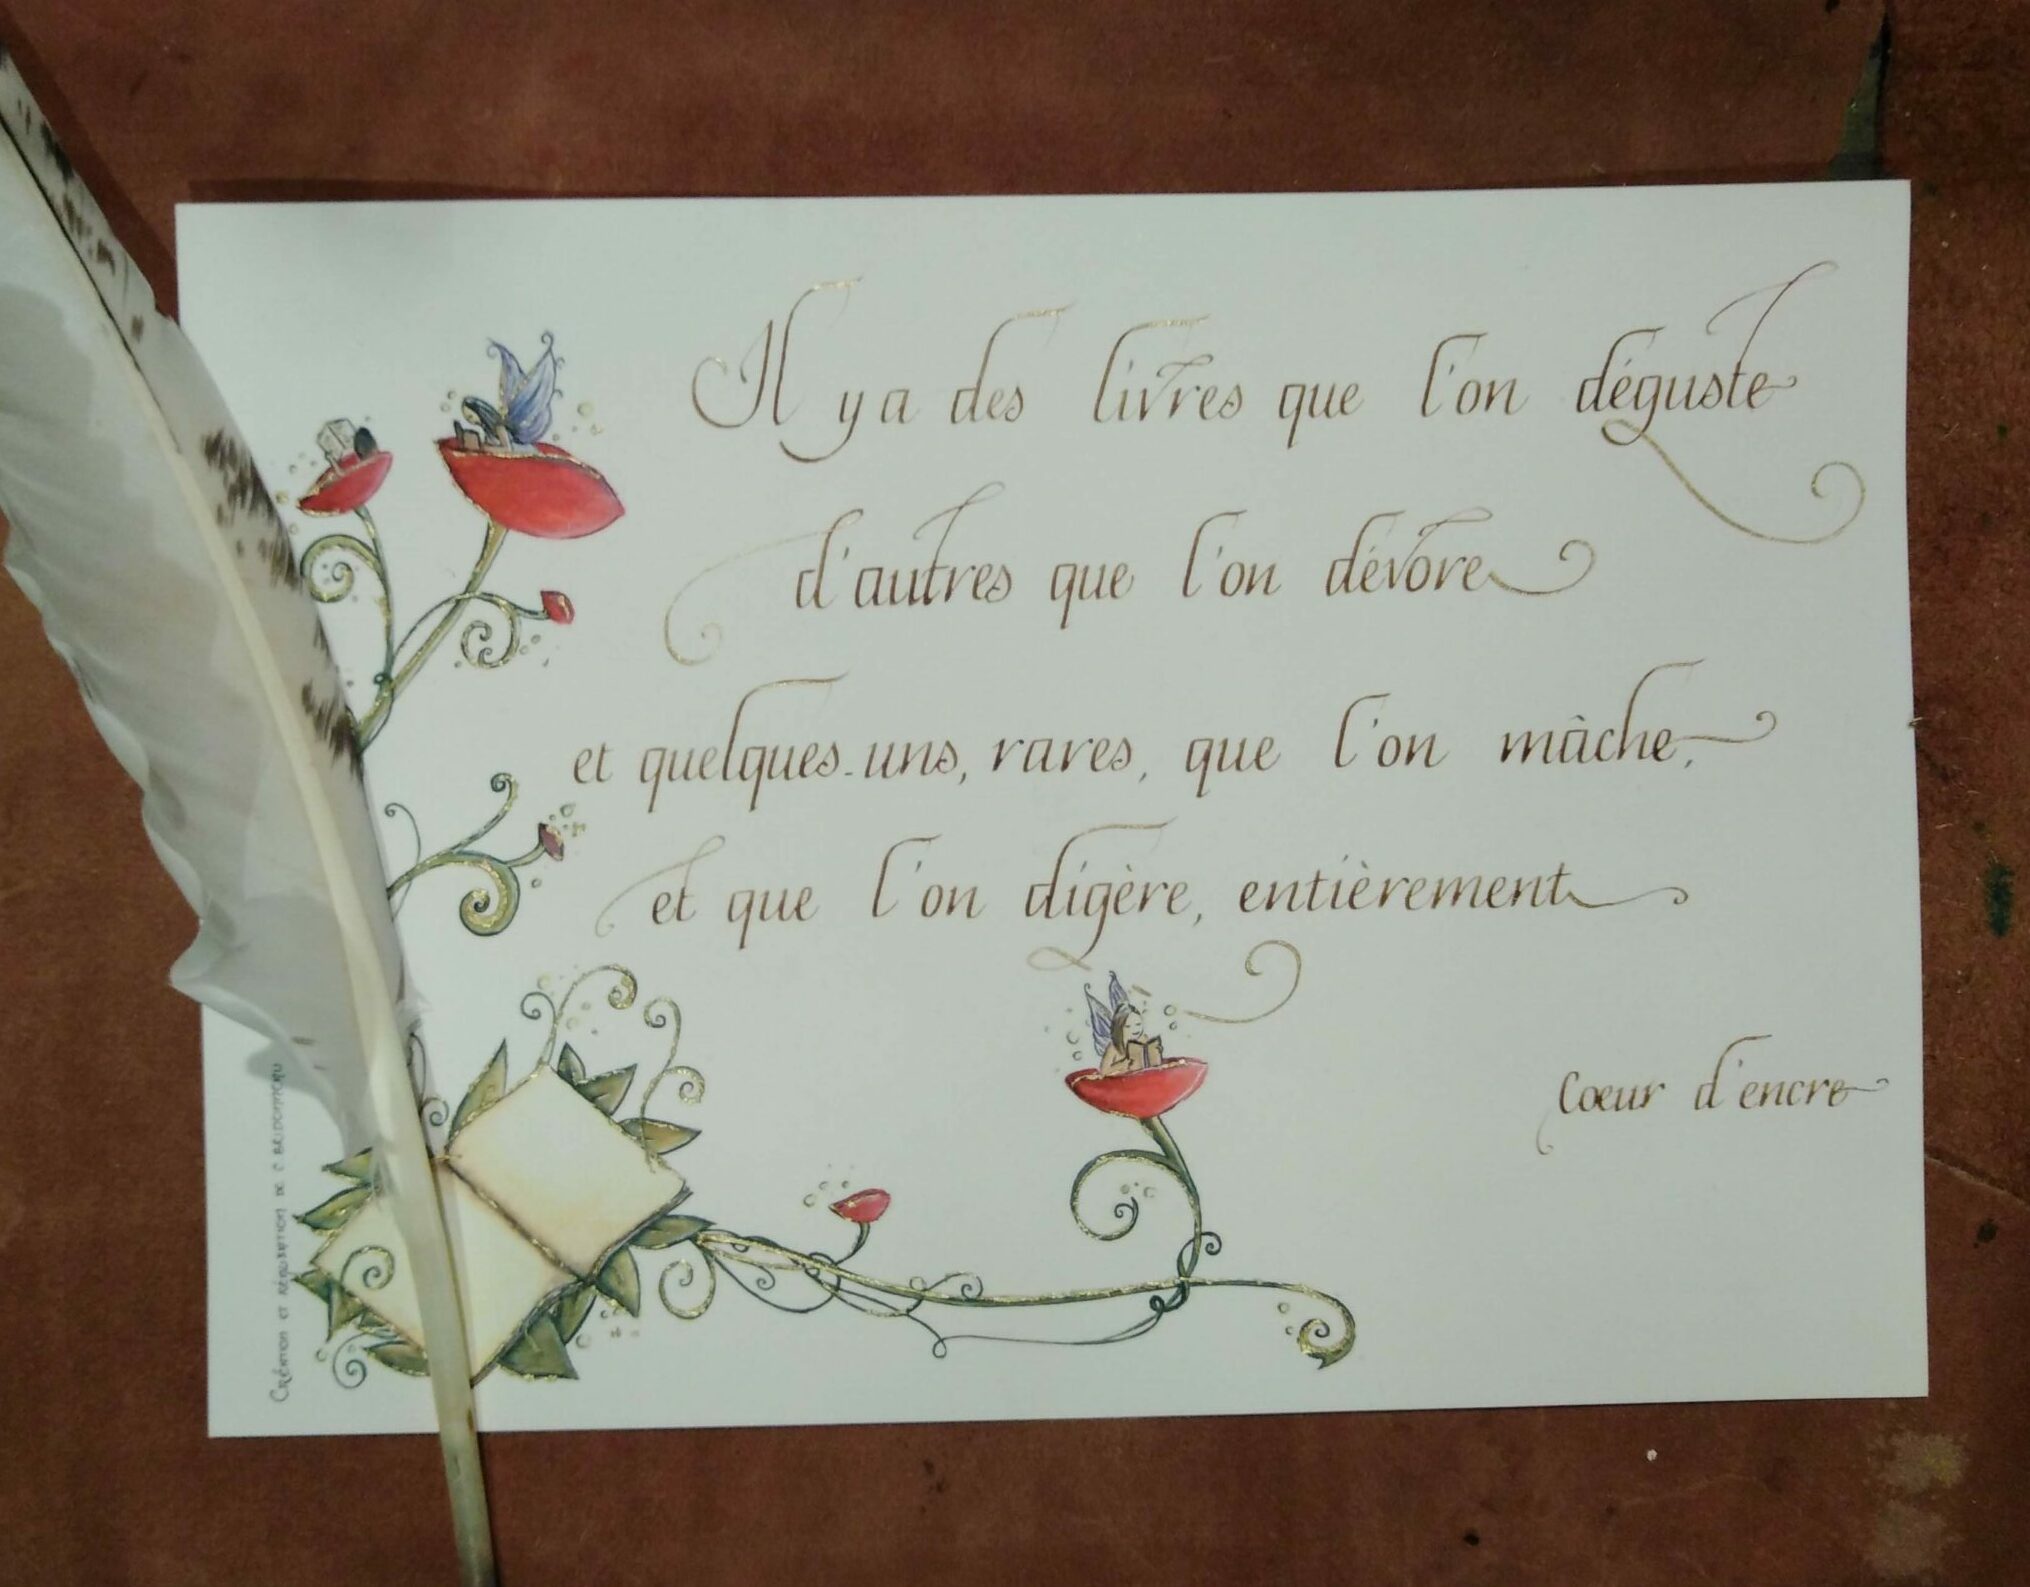 Il y a des livres que l'on déguste
d'autres que l'on dévore
et quelques-uns, rares, que l'on mâche,
et que l'on digère, entièrement
Coeur d'encre
Création et réalisation de C Bridonneau